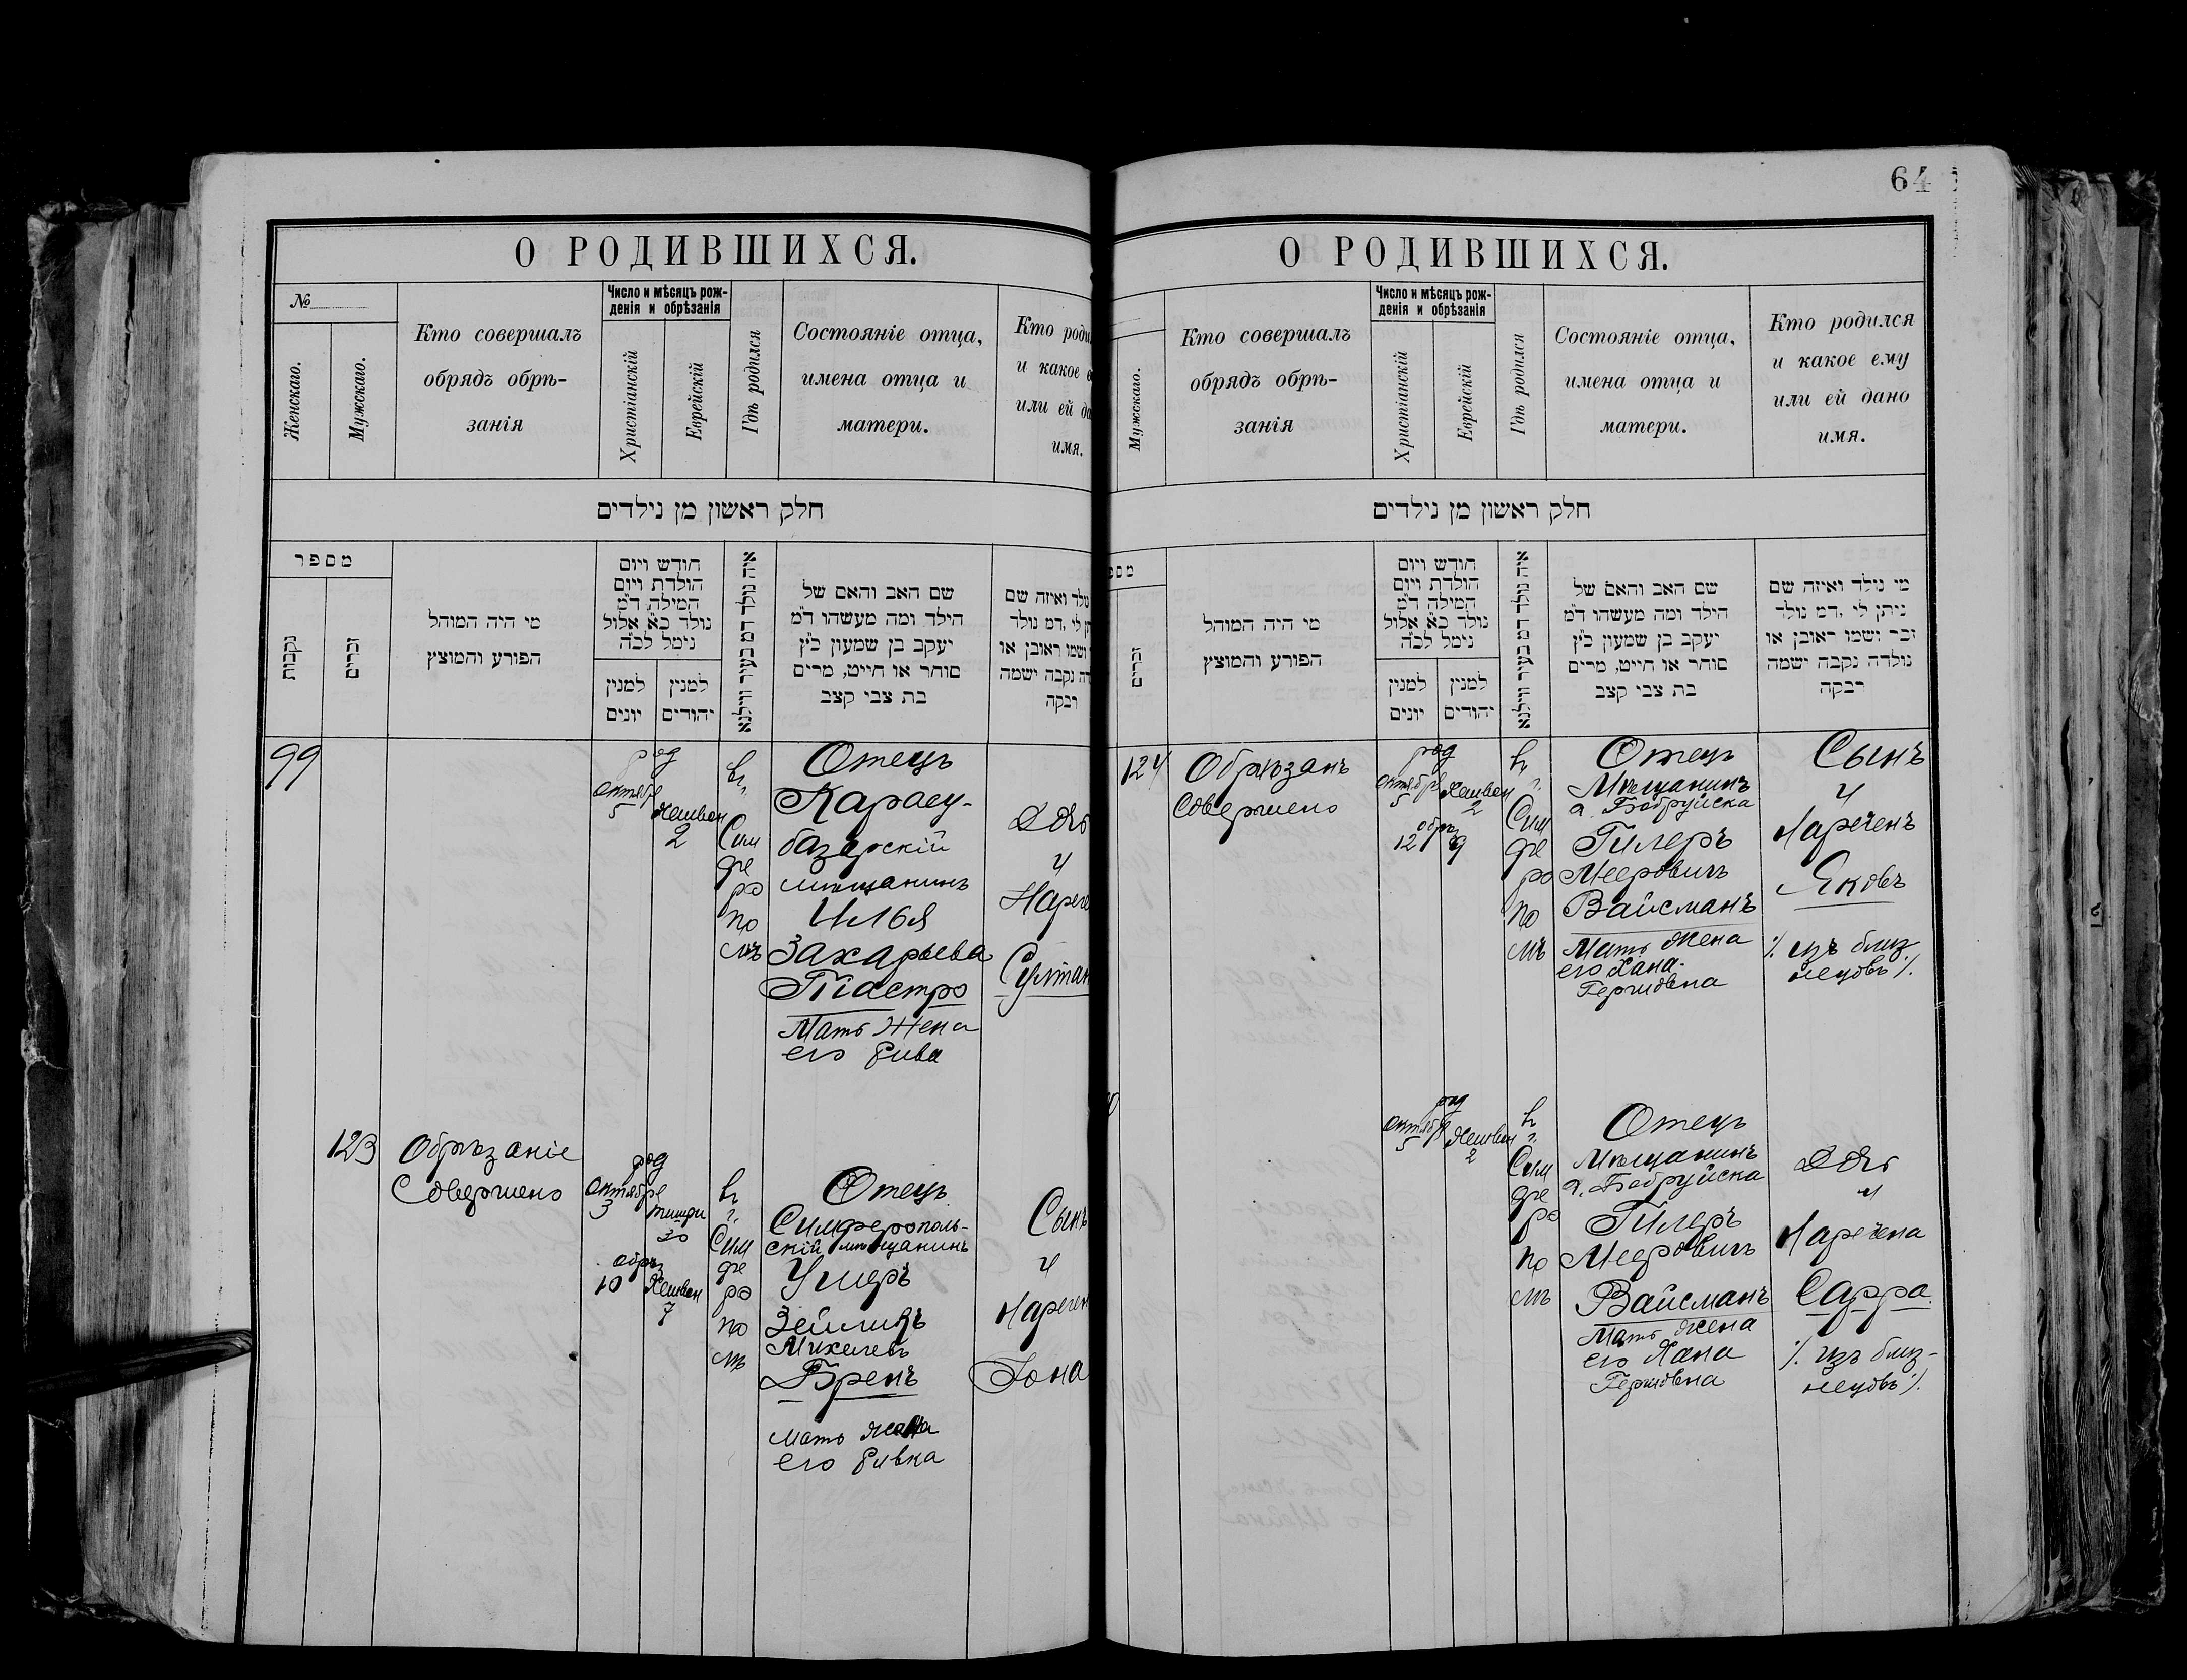 О РОДИВШИХСЯ.
№
Женскаго.
Мужскаго.
Кто совершалъ
обрядъ обрѣ-
занія
Число и мѣсяцъ рож-
денія и обрѣзанія
Христіанскій
Еврейскій
Гдѣ родился
Состояніе отца,
имена отца и
матери.
Кто роди
и какое е
или ей да
имя.
חלק ראשון מן נילדים
מספר
נקבות
זכרים
מי היה המוהל
הפורע והמוצץ
חודש ויום
הולדת ויום
המילה ד״מ
נולד כ״א אלול
נימל לכ״ה
למנין
יונים
למנין
יהודים
איה נולד דמ בעיר ווילנא
שם האב והאם של
הילד ומה מעשהו ד״מ
יעקב בן שמעון כ״ץ
סוחר או חייט, מרים
בת צבי קצב
נולד ואיזה שם
תן לי ,דמ נולד
ושמו ראובן או
דה נקבה ישמה
רבקה
99
род
октября
5
Хешван
2
въ
г.
Сим
фе
ро
по
лѣ
Отецъ
Карасу-
базарскій
мѣщанинъ
Илья
Захарьева
Піастро
Мать жена
его Рива
Дочь
и
Нарече
Султан
123
Обрѣзаніе
Совершено
род
октября
3
тишри
30
обрѣз
10
Хешван
7
въ
г.
Сим
фе
ро
по
лѣ
Отецъ
Симферополь-
скій мѣщанинъ
Ушеръ
Зейликъ
Михелевъ
Бренъ
мать жена
его Ривка
Сынъ
и
Наречен
Іона
64
О РОДИВШИХСЯ.
Мужскаго.
Кто совершалъ
обрядъ обрѣ-
занія
Число и мѣсяцъ рож-
денія и обрѣзанія
Христіанскій
Еврейскій
Гдѣ родился
Состояніе отца,
имена отца и
матери.
Кто родился
и какое ему
или ей дано
имя.
חלק ראשון מן נילדים
מס
זכרים
מי היה המוהל
הפורע והמוצץ
חודש ויום
הולדת ויום
המילה ד״מ
נולד כ״א אלול
נימל לכ״ה
למנין
יונים
למנין
יהודים
איה נולד דמ בעיר ווילנא
שם האב והאם של
הילד ומה מעשהו ד״מ
יעקב בן שמעון כ״ץ
סוחר או חייט, מרים
בת צבי קצב
מי נולד ואיזה שם
ניתן לי ,דמ נולד
זכר ושמו ראובן או
נולדה נקבה ישמה
רבקה
124
Обрѣзанъ
Совершено
род
октября
5
Хешван
2
обрѣз
12
9
въ
г.
Сим
фе
ро
по
лѣ
Отецъ
Мѣщанинъ
г. Бобруйска
Гилеръ
Мееровичъ
Вайсманъ
Мать жена
его Хана-
Гершовна
Сынъ
и
Нареченъ
Яковъ
·/. изъ близ-
нецовъ ·/.
род
октября
5
Хешван
2
въ
г.
Сим
фе
ро
по
лѣ
Отецъ
Мѣщанинъ
г. Бобруйска
Гилеръ
Мееровичъ
Вайсманъ
Мать жена
его Хана
Гершовна
Дочь
и
Наречена
Сарра
·/. изъ близ-
нецовъ ·/.